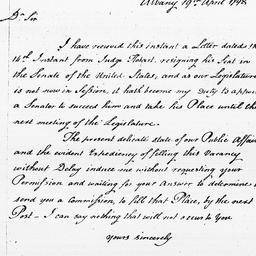 Albany 19th April 1798
Dr Sir
I have received this instant a Letter dated the
14th Instant from Judge Hobart, resigning his Seat in
the Senate of the United States, and as our Legislature
is not now in Session, it hath become my duty to appoint
a Senator to succeed him and take his Place until the
next meeting of the Legislature.
The present delicate state of our Public Affairs
and the evident Expediency of filling this Vacancy
without Delay induce me without requesting your
Permission and waiting for your Answer to determine to
send you a Commission, to fill that Place, by the next
Post – I can say nothing that will not occur to you
yours sincerely